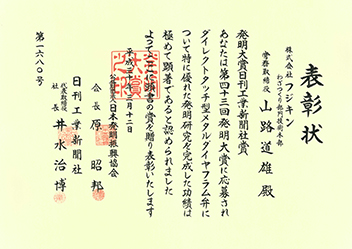 表彰状
株式会社フジキン
わざづくり部門技術本部
常務取締役 山路道雄殿
発明大賞日刊工業新聞社賞
あなたは第四十三回発明大賞に応募され
ダイレクトタッチ型メタルダイヤフラム弁に
ついて特に優れた発明研究を完成した功績は
極めて顕著であると認められました
よってここに頭書の賞を贈り表彰いたします
平成三十年三月十二日
公益財団法人日本発明振興協会
会長 原 昭邦
日刊工業新聞社
代表取締役
社長 井水治博
第一六八〇号